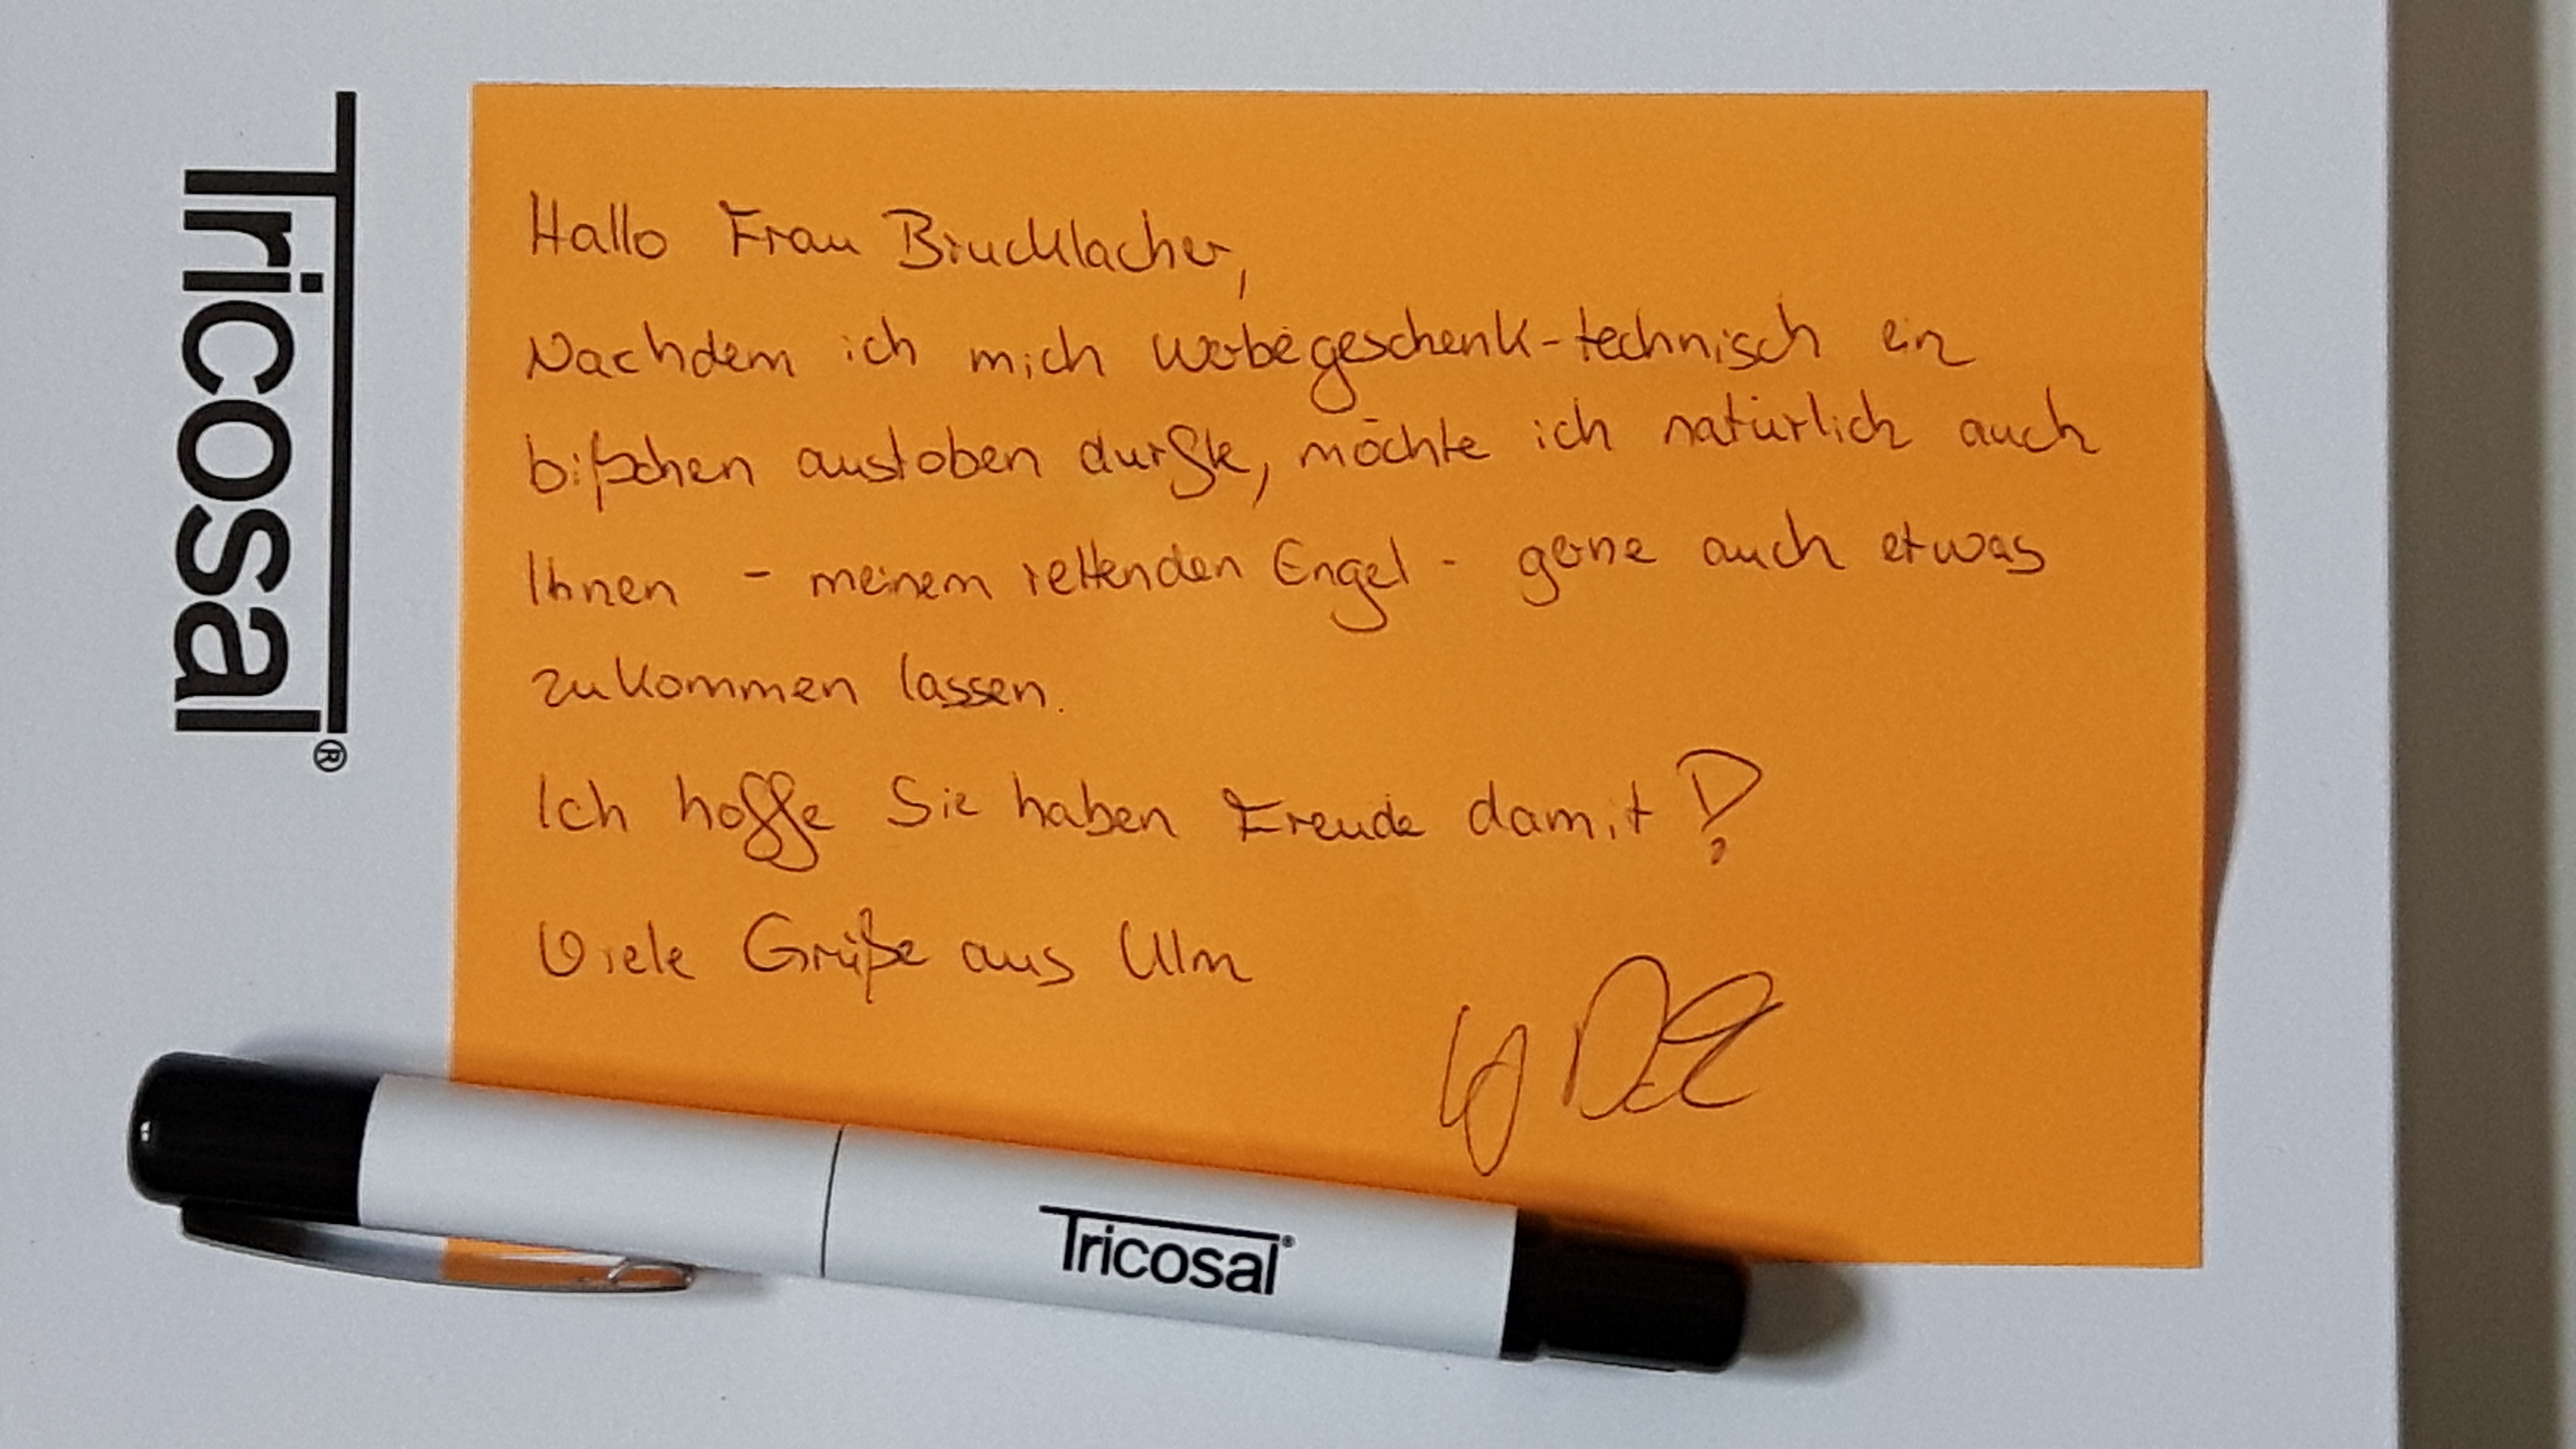 Tricosal®
Hallo Frau Brucklacher,
Nachdem ich mich werbegeschenk-technisch ein
bißchen austoben durfte, möchte ich natürlich auch
Ihnen - meinem rettenden Engel - gerne auch etwas
zukommen lassen.
Ich hoffe Sie haben Freude damit!
Viele Grüße aus Ulm
Tricosal®